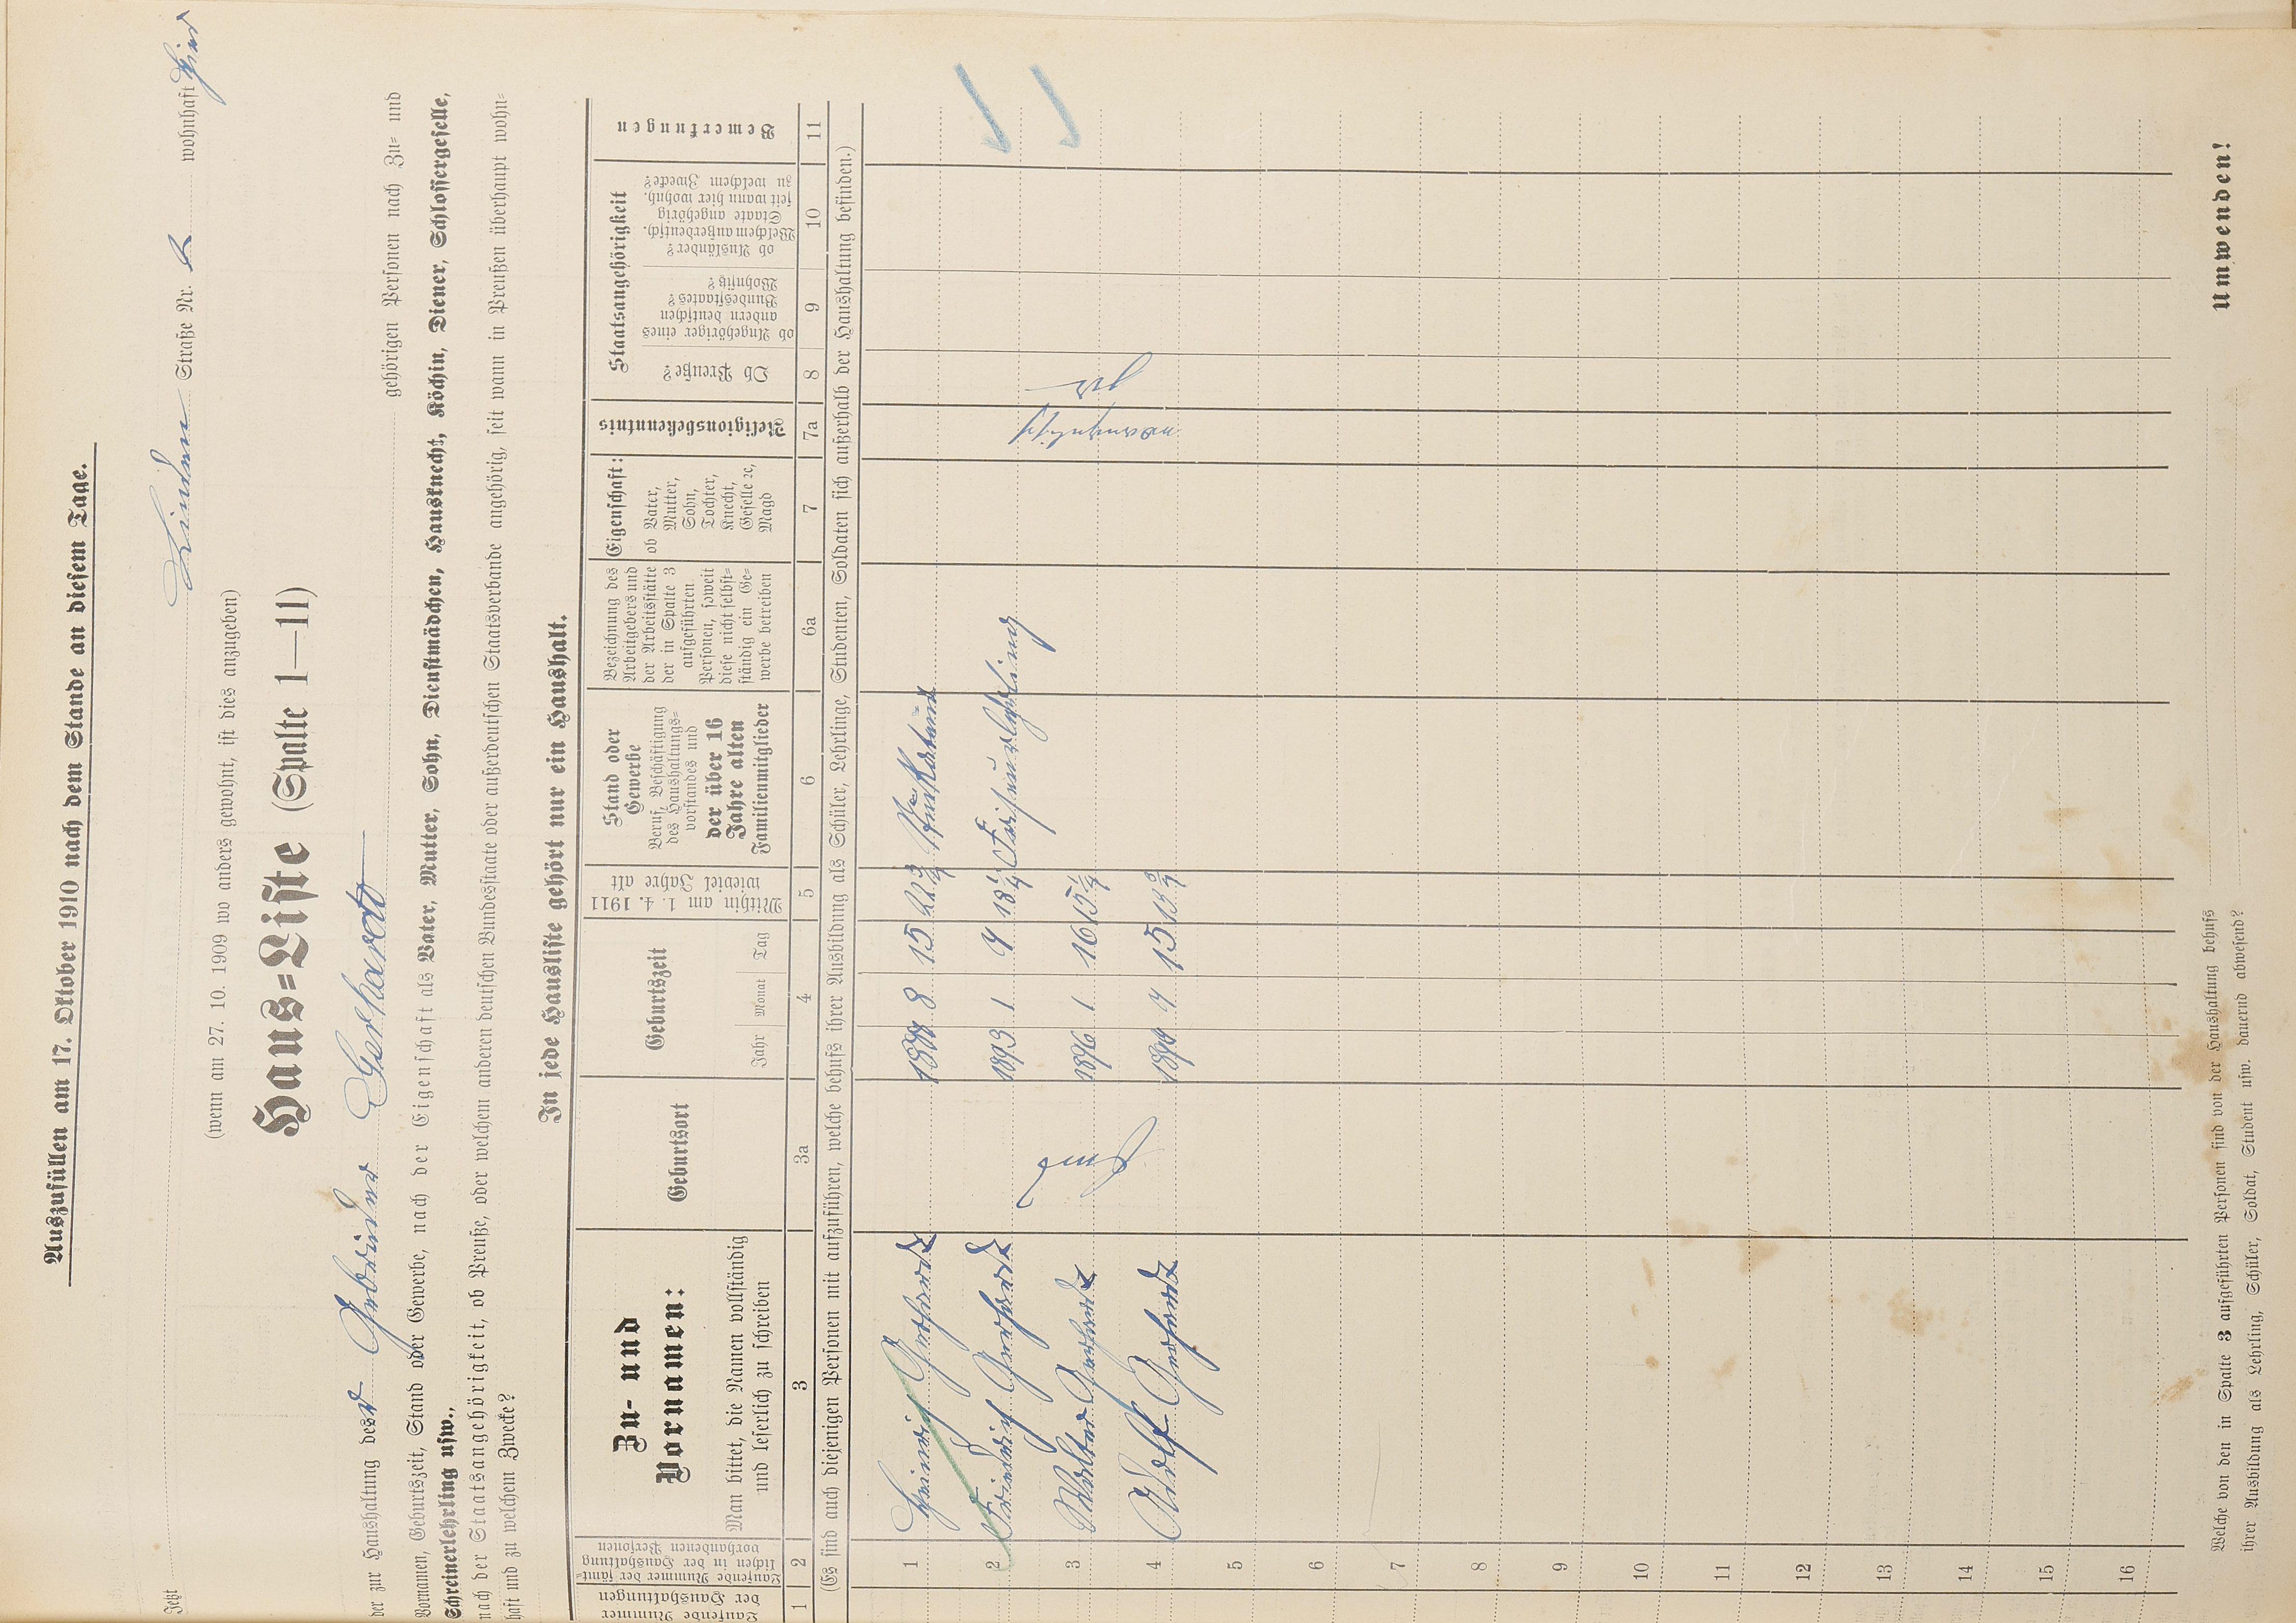 Auszufüllen am 17. Oktober 1910 nach dem Stande an diesem Tage.
Jetzt Linden Straße Nr. wohnhaft hier
(wenn am 27. 10. 1909 wo anders gewohnt, ist dies anzugeben)
Haus=Liste (Spalte 1—11)
der zur Haushaltung der Gebrüder Gerhardt gehörigen Personen nach Zu= und
Vornamen, Geburtszeit, Stand oder Gewerbe, nach der Eigenschaft als Vater, Mutter, Sohn, Dienstmädchen, Hausknecht, Köchin, Diener, Schlossergeselle,
Schreinerlehrling usw.,
nach der Staatsangehörigkeit, ob Preuße, oder welchem anderen deutschen Bundesstaate oder außerdeutschen Staatsverbande angehörig, seit wann in Preußen überhaupt wohn=
haft und zu welchem Zwecke?
In jede Hausliste gehört nur ein Haushalt.
Laufende Nummer der Haushaltungen
Laufende Nummer der sämt=
lichen in der Haushaltung
vorhandenen Personen
Zu- und
Vornamen:
Man bittet, die Namen vollständig
und leserlich zu schreiben
Geburtsort
Geburtszeit
Jahr Monat Tag
Mithin am 1. 4. 1911
wieviel Jahre alt
Stand oder
Gewerbe
Beruf, Beschäftigung
des Haushaltungs=
vorstandes und
der über 16
Jahre alten
Familienmitglieder
Bezeichnung des
Arbeitgebers und
der Arbeitsstätte
der in Spalte 3
aufgeführten
Personen, soweit
diese nicht selbst=
ständig ein Ge=
werbe betreiben
Eigenschaft:
ob Vater,
Mutter,
Sohn,
Tochter,
Knecht,
Geselle ec,
Magd
Religionsbekenntnis
Staatsangehörigkeit
Ob Preuße?
ob Angehöriger eines
andern deutschen
Bundesstaates?
Wohnsitz?
ob Ausländer?
Welchem außerdeutsch.
Staate angehörig
seit wann hier wohnh.
zu welchem Zwecke?
Bemerkungen
1 2 3 3a 4 5 6 6a 7 7a 8 9 10 11
(Es sind auch diejenigen Personen mit aufzuführen, welche behufs ihrer Ausbildung als Schüler, Lehrlinge, Studenten, Soldaten sich außerhalb der Haushaltung befinden.)
1 Heinrich Gerhardt 8 15 22 3/4
2 Friedrich Gerhardt 1893 1 4 18 1/4 Friseurlehrling
3 Walter Gerhardt 1896 1 16 15 1/4
4 Adolf Gerhardt 15
evangelisch
ja
5
6
7
8
9
10
11
12
13
14
15
16
Welche von den in Spalte 3 aufgeführten Personen sind von der Haushaltung behufs
ihrer Ausbildung als Lehrling, Schüler, Soldat, Student usw. dauernd abwesend?
Umwenden!